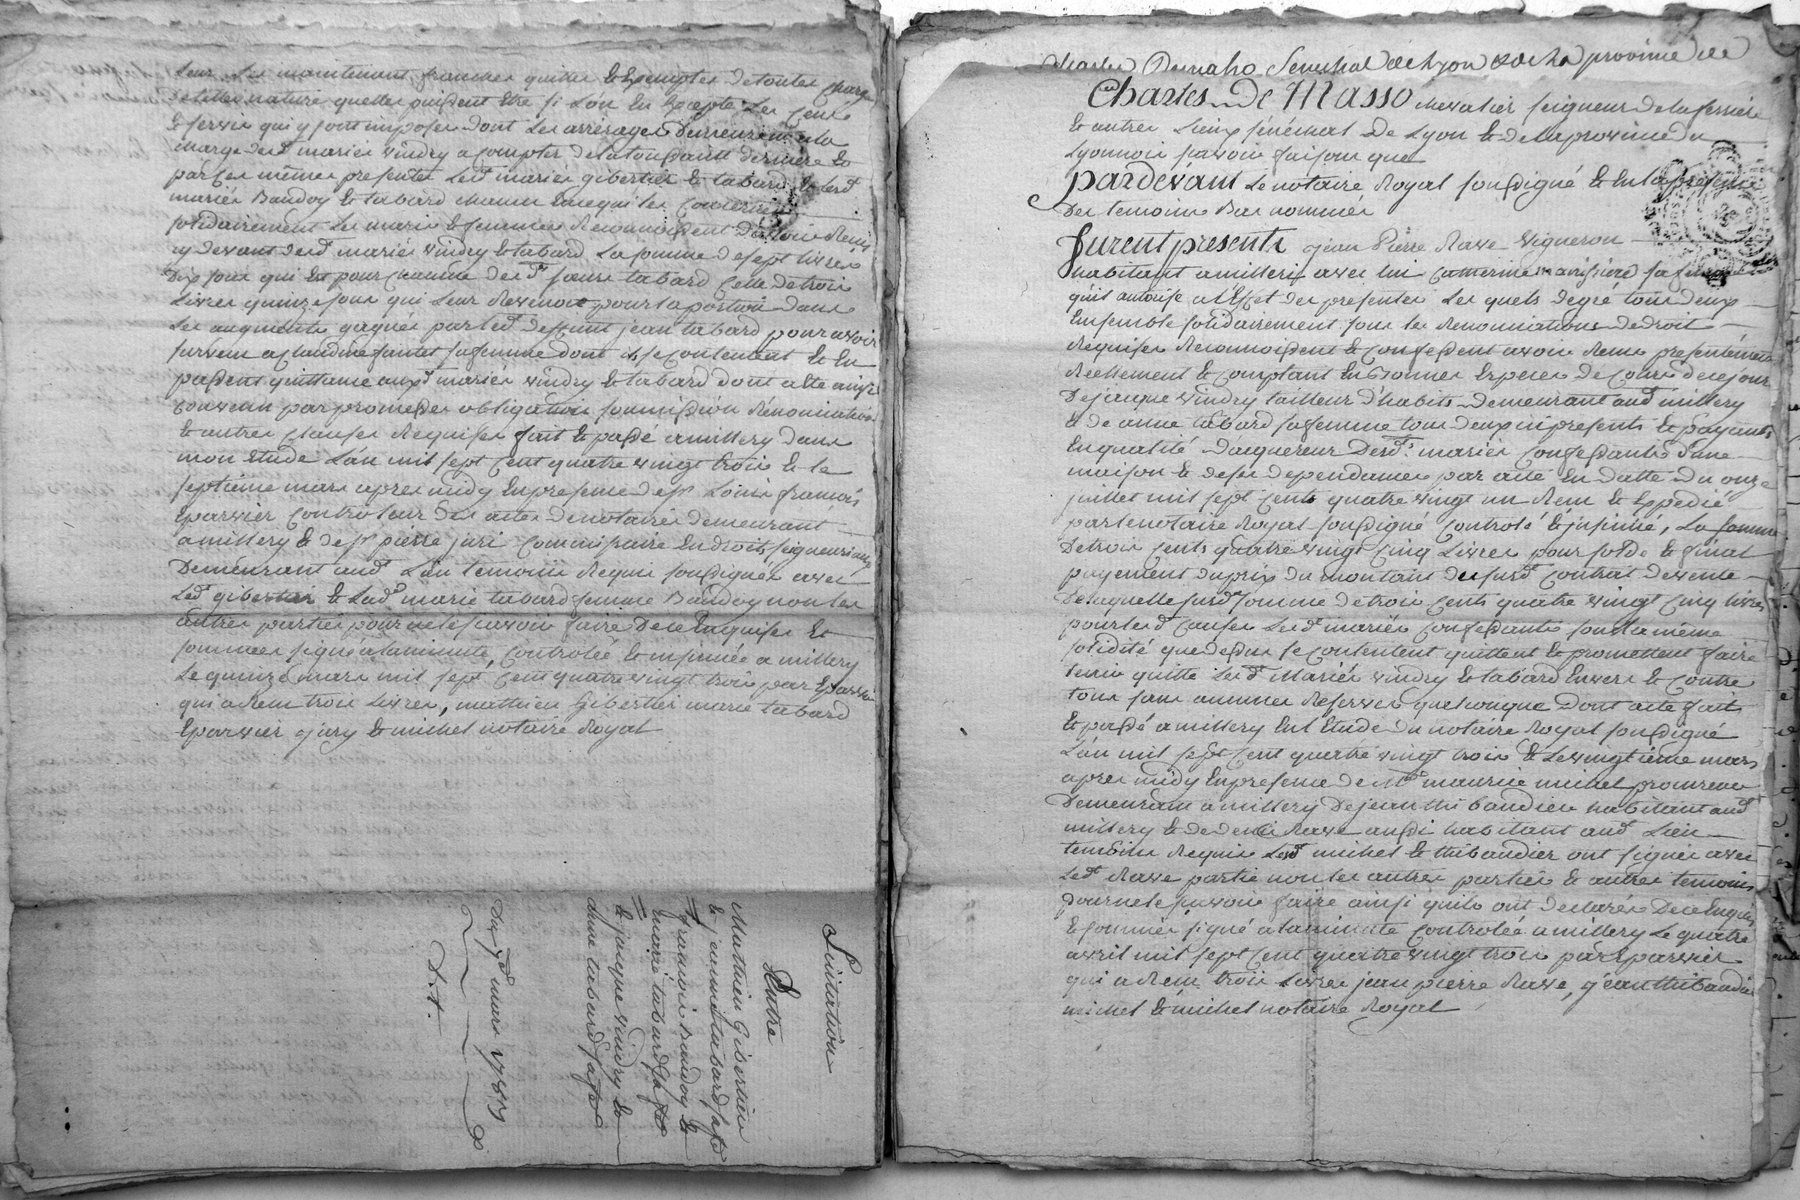 leur des maintenant franches quittes & Exemptes de toutes charges
de telles nature quelles puissent Etre si L'on En Excepte Les Cens
& servis qui y sont imposés dont Les arrérages demeurent a la
charge desd. mariés vindry a compter de la toussaint derniere &
par ces mêmes presentes Lesd. mariés gibertier & tabard & Lesd.
mariés Baudoy & tabard chacun En ce qui les concerne
solidairement Les maris & femmes Reconnoissent d'avoir Reçu
cy devant desd. mariés vindry & tabard La somme de sept livres
Dix sous qui Est pour chacune desd. sœurs tabard Celle de trois
Livres quinze sous qui Leur Revenoit pour la portion dans
Les augments gagnés par led. deffunt jean tabard pour avoir
survecu a Claudine fantet sa femme dont ils se contentent & En
passent quittance auxd. mariés vindry & tabard dont acte ainsi
convenu par promesses obligation soumission Rénonciation
& autres clauses Requises fait & passé a millery dans
mon Etude L'an mil sept cent quatre vingt trois & le
septieme mars après midy En presence de sr. Louis françois
Eparvier Controleur des actes de notaires demeurant
a millery & de sr. pierre juri Commissaire En droits seigneuriaux
Demeurant aud. Lieu temoins Requis soussignés avec
Led. gibertier & Lad. marie tabard femme Baudoy non les
autres parties pour ne le savoir faire De ce Enquises &
sommées signé a la minute, Controllée & insinuée a millery
Le quinze mars mil sept cent quatre vingt trois par Eparvier
qui a Reçu trois Livres, mathieu Gibertier marie tabard
Eparvier jury & michel notaire Royal
Licitation
Entre
Mathieu Gibertier
& jeanne tabard sa fe
françois Baudoy &
marie tabard sa fe
& jacque vindry &
anne tabard sa fe
Du 7e mars 1783
Charles Demasso Senechal de Lyon & de La province de
Charles De Masso chevalier seigneur de la ferriere
& autres Lieux sénéchal De Lyon & de la province du
Lyonnois savoir faisons que
pardevant Le notaire Royal soussigné & En la presence
Des temoins Bas nommés
furent presents jean Pierre Rave vigneron
habitant a millery & avec lui Catherine sa femme
qu'il autorise a l'Effet des presentes Les quels de gré tous deux
Ensemble solidairement sous les Renonciations de droit
Requises Reconnoissent & Confessent avoir Reçu presentement
Réellement & Comptant En Bonnes Especes de Cours de ce jour
De jacque vindry tailleur d'habits demeurant aud. millery
& de anne tabard sa femme tous deux ici presents & payants
En qualité d'acquereur Desd. mariés Confessants d'une
maison & de ses dependances par acte En datte du onze
juillet mil sept cents quatre vingt un Reçu & Expedié
par le notaire Royal soussigné Controlé & insinué, La somme
De trois cents quatre vingt cinq Livres pour solde & final
payement du prix du montant des susd. contrat de vente
De laquelle susd. somme de trois cents quatre vingt cinq livres
pour lesd. causes Lesd. mariés Confessants sous la même
solidité que dessus se contentent quittent & promettent faire
tenir quitte Lesd. Mariés vindry & tabard Envers & contre
tous sans aucunes Reserves quelconque dont acte fait
& passé a millery En L'Etude du notaire Royal soussigné
L'an mil sept cent quatre vingt trois & Le vingtieme mars
après midy En presence de Me. maurice michel procureur
Demeurant a millery De jean thibaudier habitant aud.
millery & de denis Rave aussi habitant aud. Lieu
temoins Requis Led. michel & thibaudier ont signés avec
Led. Rave partie non les autres parties & autres temoins
pour ne le savoir faire ainsi quils ont declarés De ce Enquis
& sommés signé a la minute Controllée a millery Le quatre
avril mil sept cent quatre vingt trois par Eparvier
qui a Reçu trois Livres jean pierre Rave, jean thibaudier
michel & michel notaire Royal